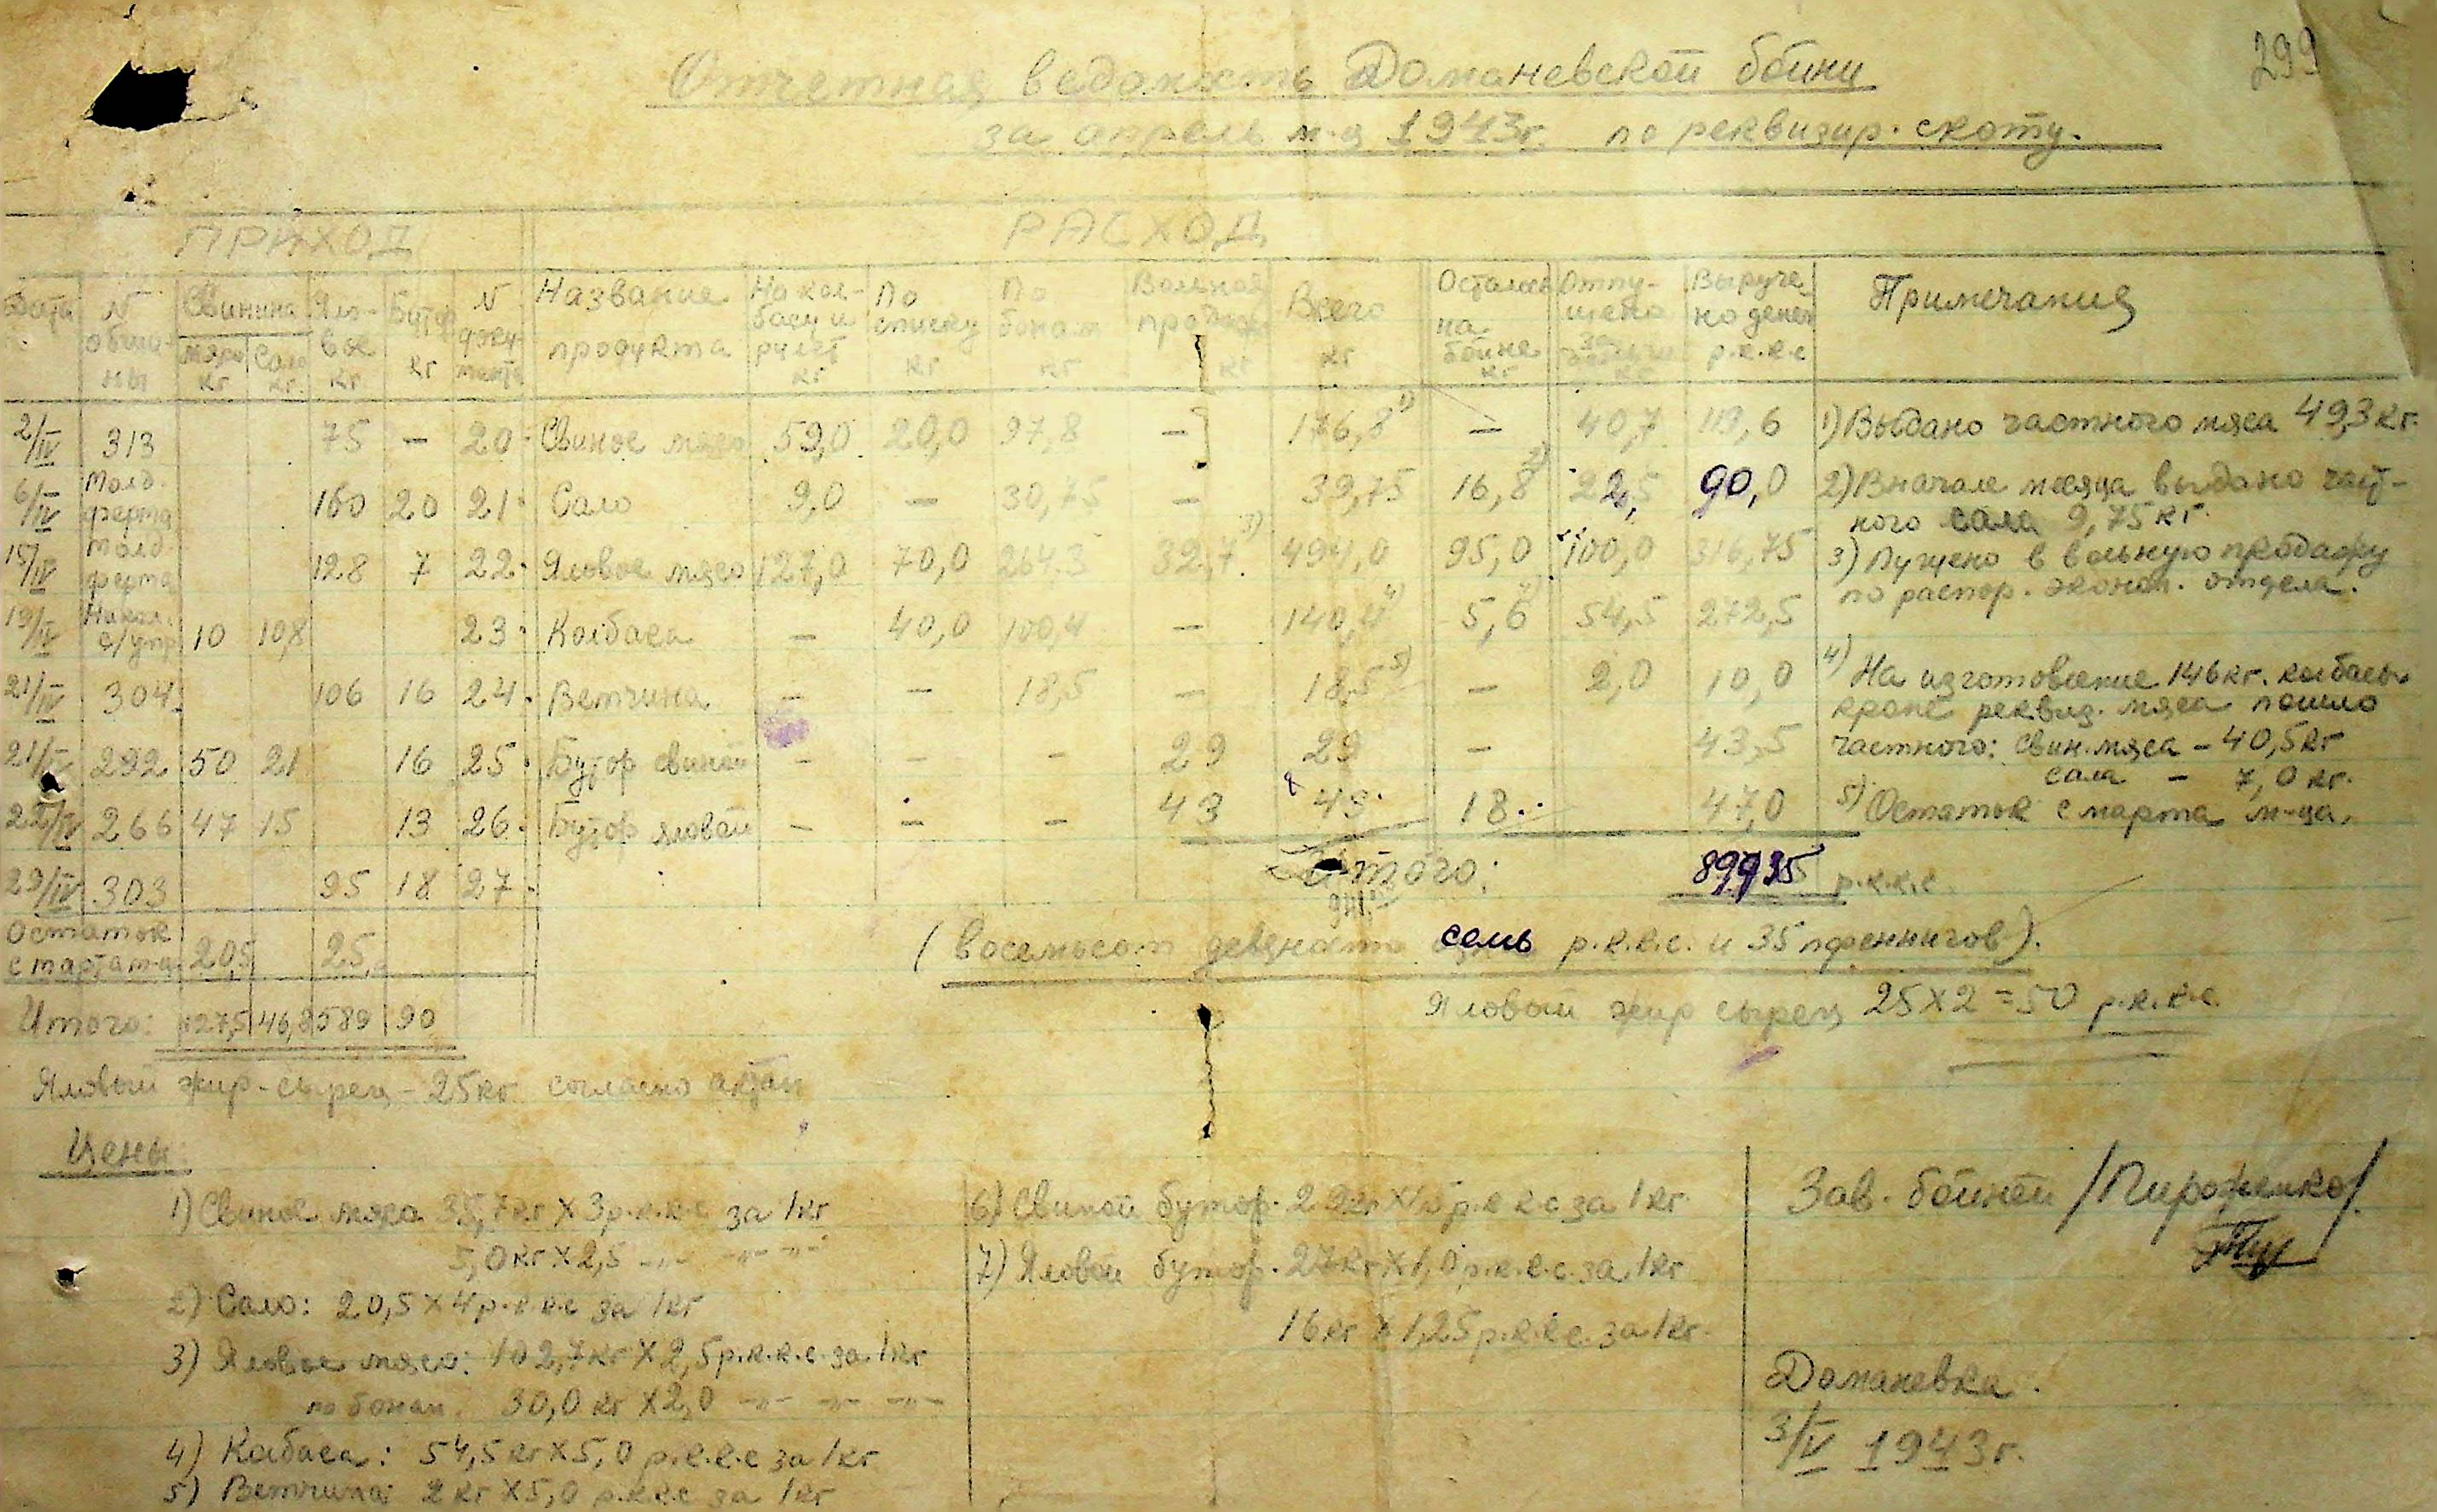 299
Отчетная ведомость Доманевской бойни
за апрель м-ц 1943г. по реквизир. скоту.
ПРИХОД РАСХОД
Дата N общины Свинина мясо кг Сало кг. Яловое кг. Бутор кг N документа Название продукта На колбасу и рулет кг По списку кг По бонам кг Вольной продаж кг Всего кг Осталось на бойне кг Отпущено за кг Выручено денег р.к.к.с Примечания
2/IV 313 75 – 20 Свиное мясо 59,0 20,0 97,8 – 176,8 1) – 40,7 119,6
6/IV Молд. ферма 160 20 21 Сало 9,0 – 30,75 – 39,75 16,8 2) 22,5 90,0
15/IV Молд. ферма 128 7 22 Яловое мясо 127,0 70,0 264.3 32,7 3) 494,0 95,0 100,0 316,75
19/IV Никол. с/упр 10 10,8 23 Колбаса – 40,0 100,4 – 140,4 4) 5,6 54,5 272,5
21/IV 304 106 16 24 Ветчина – – 18,5 – 18,5 5) – 2,0 10,0
21/IV 292 50 21 16 25 Бутор свиной – – – 29 29 – 43,5
22/IV 266 47 15 13 26 Бутор яловый – – – 43 43 18 47,0
29/IV 303 95 18 27
Остаток с марта м-ца 20,5 25,
Итого: 127,5 46,8 589 90
1) Выдано частного мяса 49,3 кг.
2) Вначале месяца выдано част-
ного сала 9,75 кг.
3) Пущено в вольную продажу
по распор. эконом. отдела.
4) На изготовление 146 кг. колбасы
кроме реквиз. мяса пошло
частного: свин. мяса – 40,5 кг
сала – 7,0 кг.
5) Остаток с марта м-ца.
Итого: 897,35 р.к.к.с.
(восемьсот девяносто семь р.к.к.с. и 35 пфеннигов).
Яловый жир сырец 25 х 2 = 50 р.к.к.с.
Яловый жир-сырец – 25 кг согласно актам
Цены:
1) Свиное мясо 35,7 кг х 3 р.к.к.с за 1 кг
5,0 кг х 2,5 -„- -„- -„-
2) Сало: 20,5 х 4 р.к.к.с за 1 кг
3) Яловое мясо: 102,7 кг х 2,5 р.к.к.с. за 1 кг
по бонам. 30,0 кг х 2,0 -„- -„- -„-
4) Колбаса: 54,5 кг х 5,0 р.к.к.с за 1 кг
5) Ветчина: 2 кг х 5,0 р.к.к.с за 1 кг
6) Свиной бутор. 29 кг х 1,5 р.к.к.с за 1 кг
7) Яловый бутор. 27 кг х 1,0 р.к.к.с. за 1 кг
16 кг х 1,25 р.к.к.с. за 1 кг.
Зав. бойней /Пироженко/.
Доманевка.
3/V 1943 г.